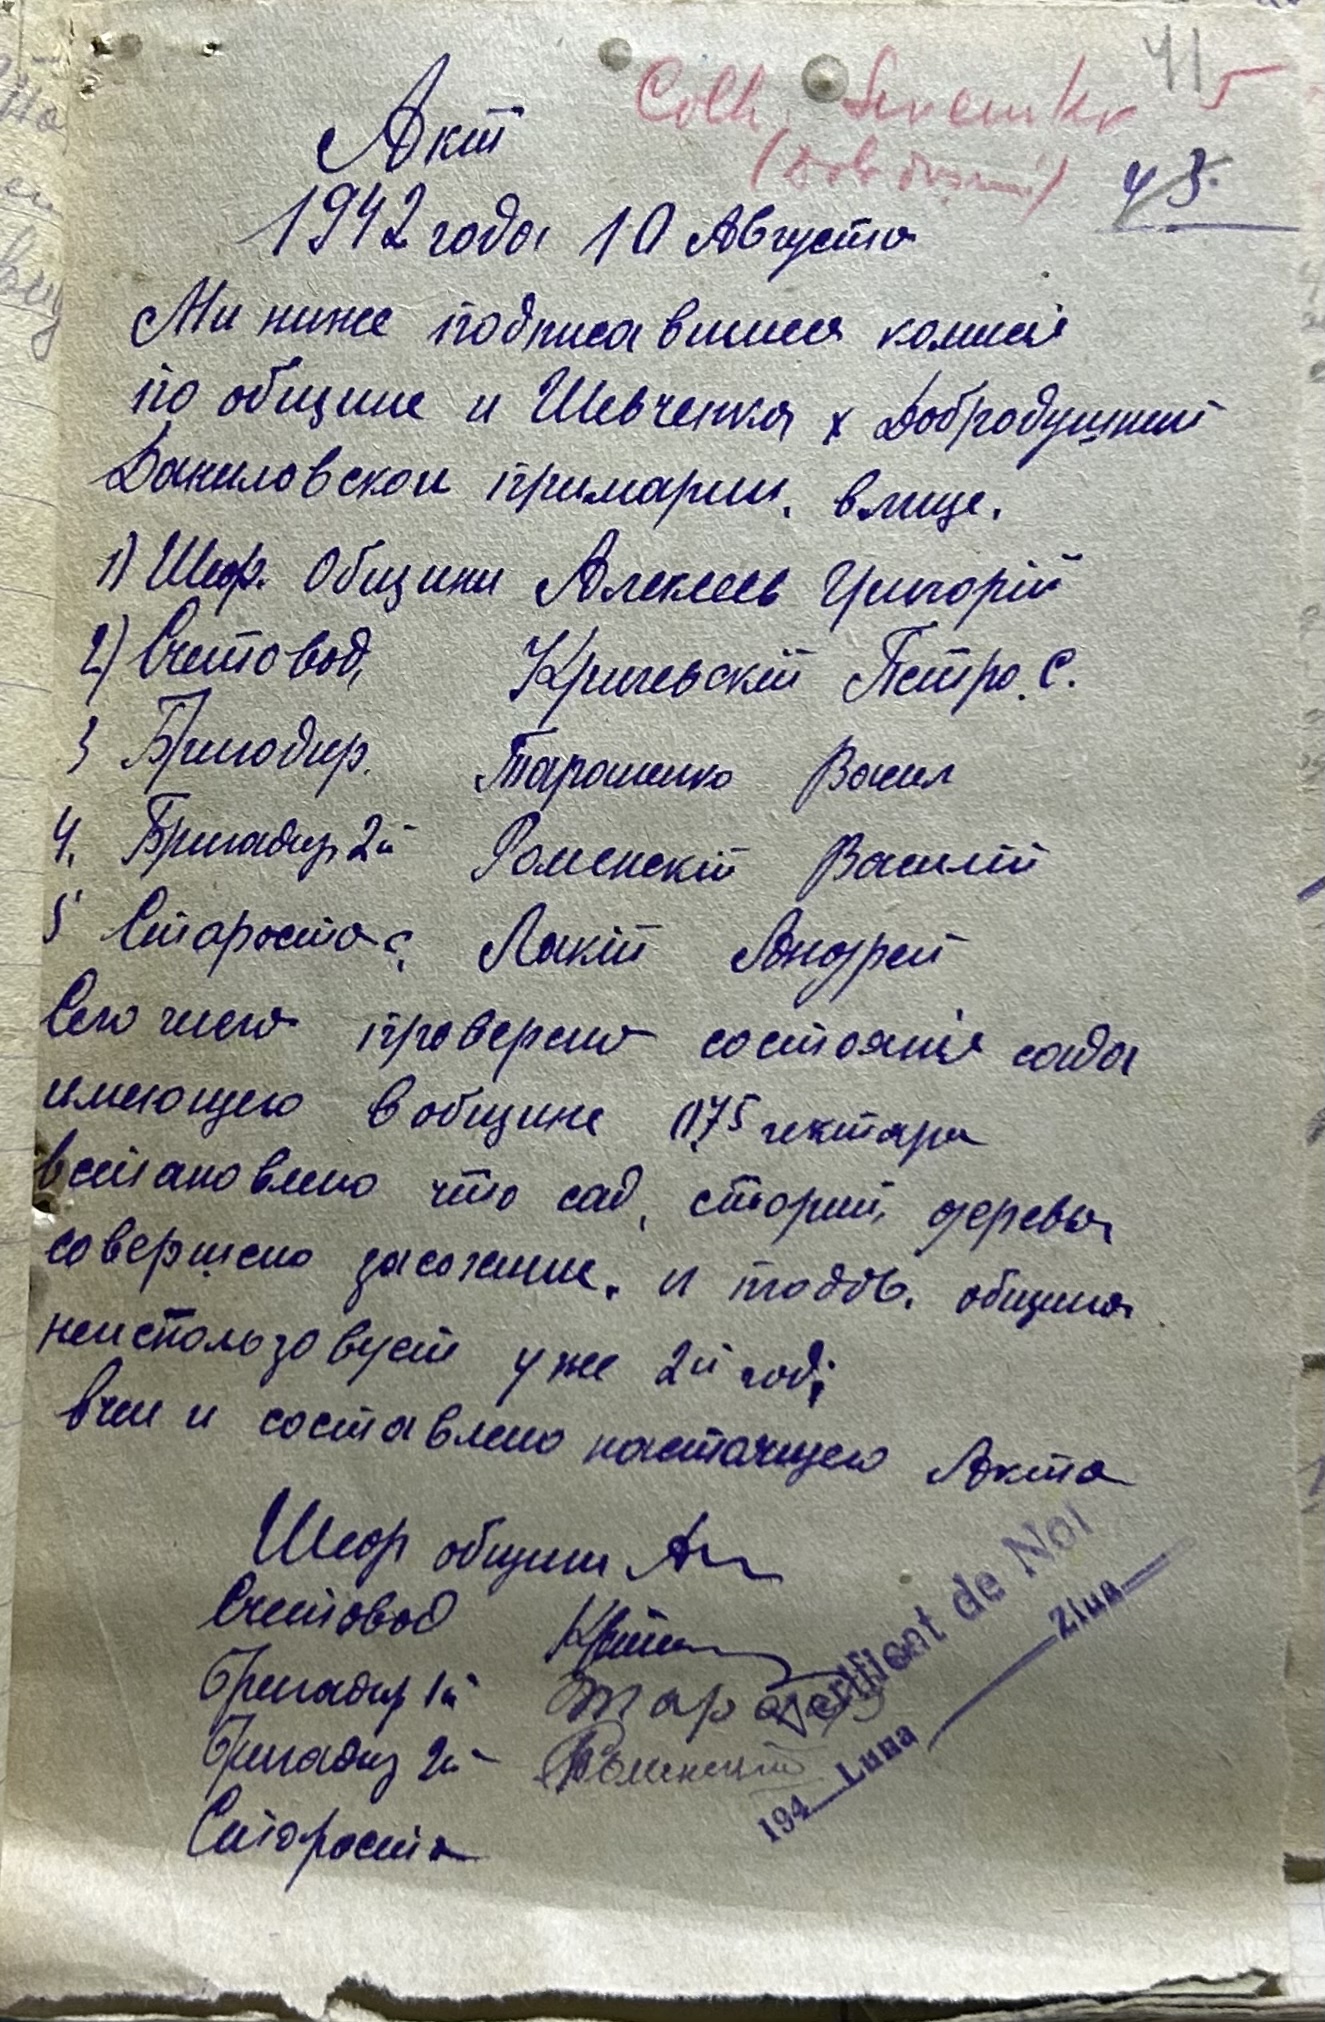 Акт
Colh.
41 5
43
1942 года 10 Августа
Ми ниже подписавшися комисія
по общине и Шевченка х Добродушний
Даниловскои примарии. влице.
1) Шеф. Общини Алексеев Григорій
2) Счетовод, Кричевскій Петро. С.
3 Бригадир. Тарашенко Васил
4. Бригадир 2й Роменскій Василій
5 Староста с. Лакій Андрей
Сего числа проверено состояніе сада
имеющего вобщине 0,75 гектара
встановлено что сад, старий, дерева
совершено засохшие. и плодов. община
неиспользовует уже 2й год;
вчем и составлено настаящего Акта
Шеф общини
Счетовод
Бригадир 1й Тара
Бригадир 2й Роменский
Староста
Verificat de Noi
194__Luna ____Ziua___